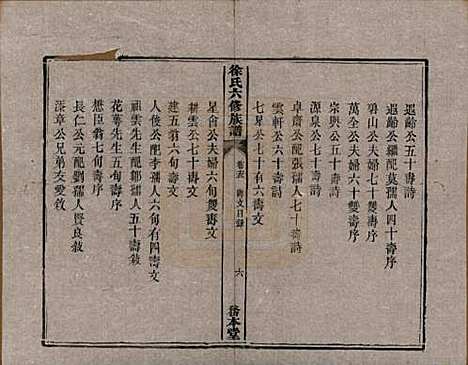 遐齡公五十壽詩
遐齡公繼配莫孺人四十壽序
碧山公夫婦七十雙壽序
萬全公夫婦六十雙壽序
宗興公五十壽詩
源泉公七十壽詩
卓齋公配張孺人七十壽詩
雲軒公六十壽詩
七星公七十有六壽文
徐氏六修族譜
卷五
壽文目錄
六
崇本堂
星會公夫婦六旬雙壽文
耕雲公七十壽文
建五翁六旬壽文
人俊公配李孺人六旬有四壽文
祖雲先生配鄒孺人五十壽敘
花萼先生五旬壽序
懋臣翁七旬壽序
長仁公元配劉孺人暨良敘
漆章公兄弟友愛敘